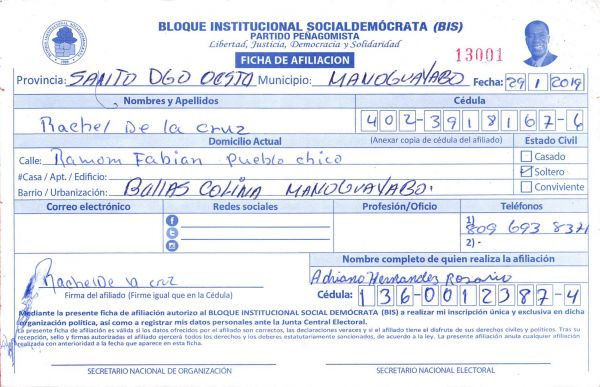 BLOQUE INSTITUCIONAL SOCIALDEMÓCRATA (BIS)
PARTIDO PEÑAGOMISTA
Libertad, Justicia, Democracia y Solidaridad
FICHA DE AFILIACION
13001
Provincia: SANTO DGO OESTO Municipio: MANOGUAYABO Fecha: 29 1 2019
Nombres y Apellidos Cédula
Rachel De la cruz 402-3918167-6
Domicilio Actual (Anexar copia de cédula del afiliado) Estado Civil
Calle: Ramom Fabian Pueblo chico Casado
#Casa / Apt. / Edificio: Soltero
Barrio / Urbanización: BALLAS COLINA MANOGUAYABO. Conviviente
Correo electrónico Redes sociales Profesión/Oficio Teléfonos
1) 809 693 8371
2)-
Nombre completo de quien realiza la afiliación
Rachel De la cruz Adriano Hernandez Rosario
Firma del afiliado (Firme igual que en la Cédula) Cédula: 136-0012387-4
Mediante la presente ficha de afiliación autorizo al BLOQUE INSTITUCIONAL SOCIAL DEMÓCRATA (BIS) a realizar mi inscripción única y exclusiva en dicha
organización política, así como a registrar mis datos personales ante la Junta Central Electoral.
La presente ficha de afiliación es válida si los datos ofrecidos por el afiliado son correctos, las declaraciones veraces y si el afiliado tiene el disfrute de sus derechos civiles y políticos. Tras su
recepción, sello y firmas autorizadas el afiliado ejercerá todos los derechos y los deberes estatutariamente sancionados, de acuerdo a la ley. La presente afiliación anula cualquier afiliación
realizada con anterioridad a la fecha que aparece en esta ficha.
SECRETARIO NACIONAL DE ORGANIZACIÓN SECRETARIO NACIONAL ELECTORAL